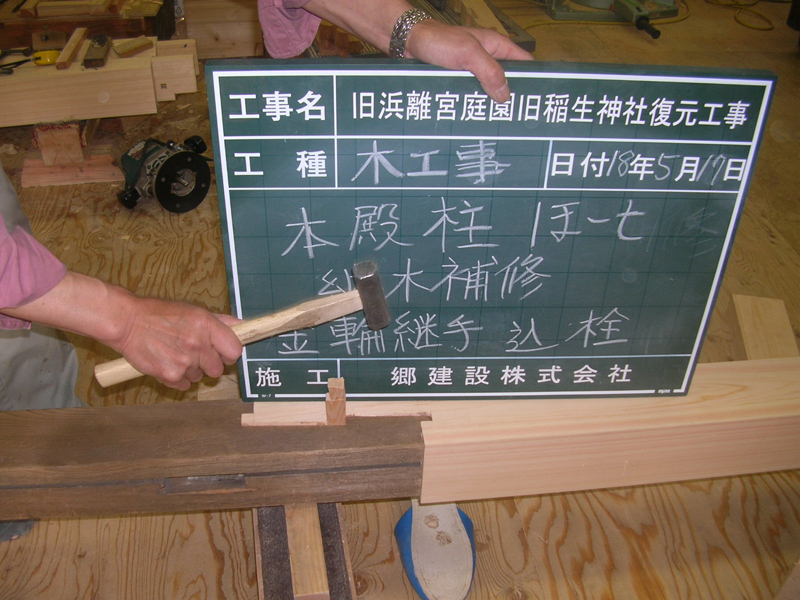 工事名 旧浜離宮庭園旧稲生神社復元工事
工種 木工事 日付18年5月17日
本殿柱 ほー七
木補修
金輪継手 込栓
施工 郷建設株式会社